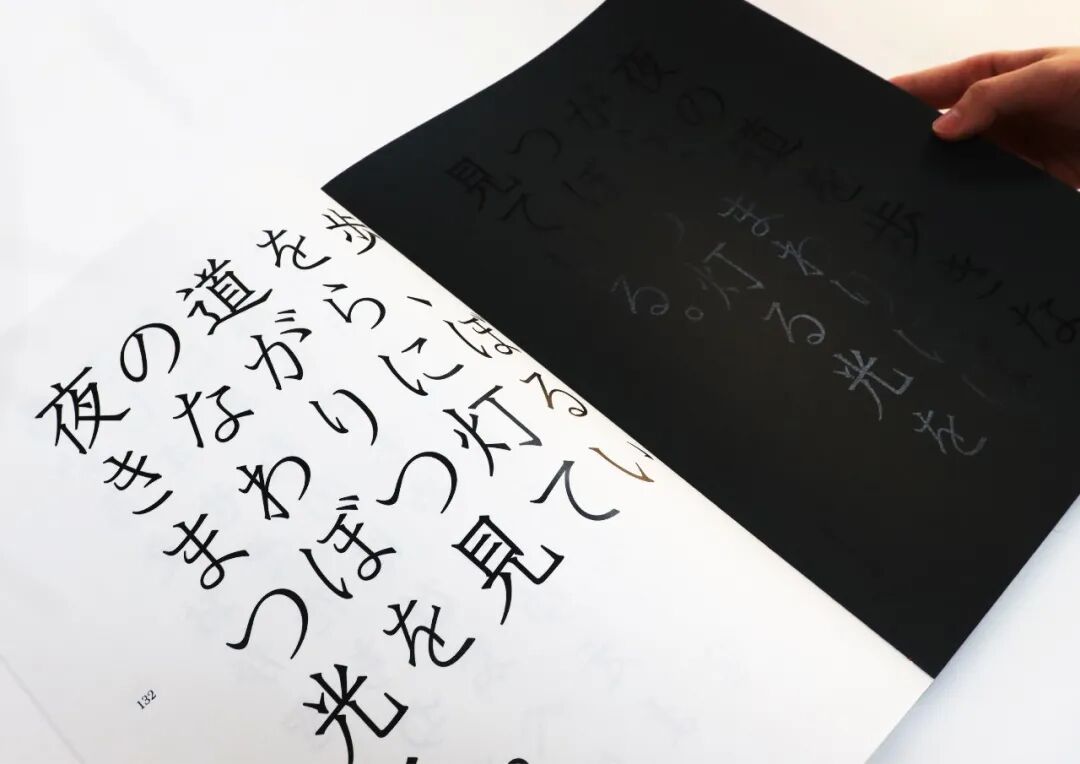 夜の道を歩
きながら、
まわりに、ぼ
つぼつ灯る
光を見てい
。
132
夜の道を歩きな
がら、まわりに、ぼ
つぼつ灯る光を
見ている。